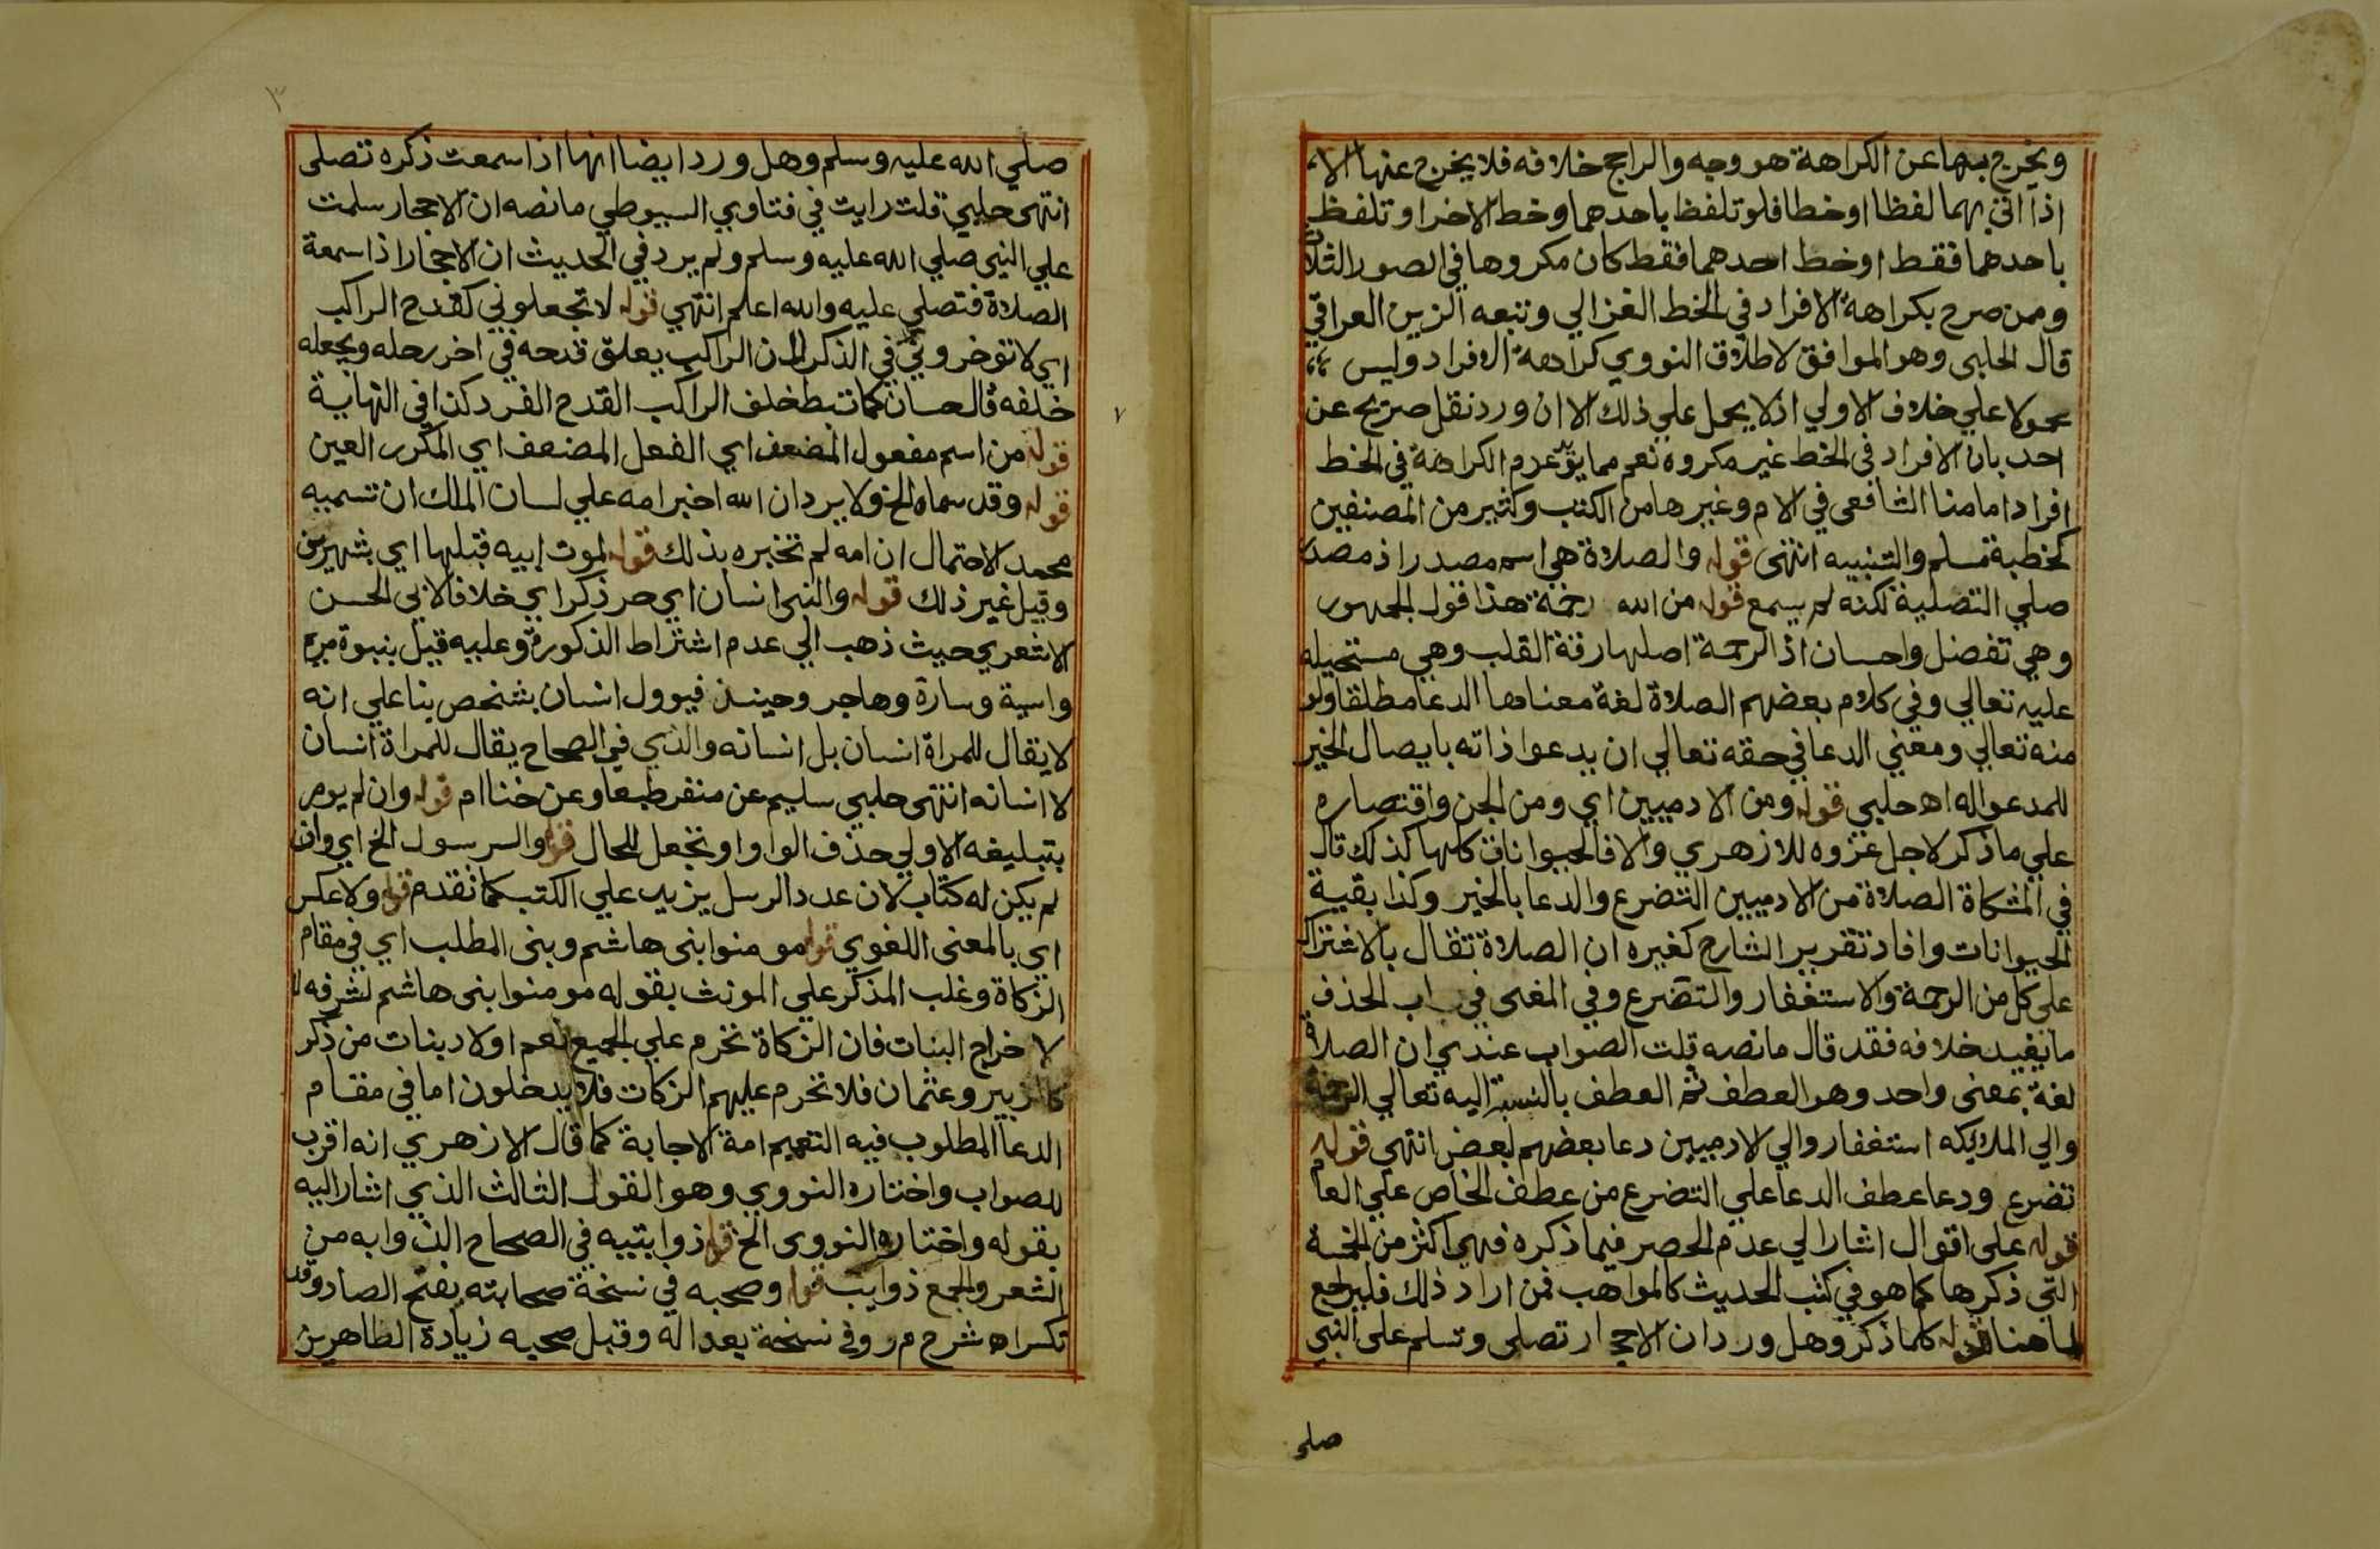 ويخرج بها عن الكراهة هو وجه والراجح خلافه فلا يخرج عنها الا
اذا اتى بهما لفظا او خطا فلو تلفظ باحدهما وخط الاخر او تلفظ
باحدهما فقط او خط احدهما فقط كان مكروها في الصور الثلاث
وممن صرح بكراهة الافراد في الخط الغزالي وتبعه الزين العراقي
قال الحلبي وهو الموافق لاطلاق النووي كراهة الافراد وليس
محمولا علي خلاف الاولي اذ لا يحمل علي ذلك الا ان ورد نقل صريح عن
احد بان الافراد في الخط غير مكروه نعم مما يؤيد عدم الكراهة في الخط
افراد امامنا الشافعي في الام وغيرها من الكتب وكثير من المصنفين
كخطبة مسلم والتنبيه انتهى قوله والصلاة هي اسم مصدر اذ مصدر
صلي التصلية لكنه لم يسمع قوله من الله رحمة هذا قول الجمهور
وهي تفضل واحسان اذ الرحمة اصلها رقة القلب وهي مستحيلة
عليه تعالي وفي كلام بعضهم الصلاة لغة معناها الدعا مطلقا ولو
منه تعالي ومعني الدعا في حقه تعالي ان يدعوا ذاته بايصال الخير
للمدعو اله اه حلبي قوله ومن الادميين اي ومن الجن واقتصاره
علي ما ذكر لاجل عزوه للازهري والا فالحيوانات كلها كذلك قال
في المشكاة الصلاة من الادميين التضرع والدعا بالخير وكذا بقية
الحيوانات وافاد تقرير الشارح كغيره ان الصلاة تقال بالاشتراك
على كل من الرحمة والاستغفار والتضرع وفي المغني في باب الحذف
ما يفيد خلافه فقد قال ما نصه قلت الصواب عندي ان الصلاة
لغة بمعنى واحد وهو العطف ثم العطف بالنسبة اليه تعالي الرحمة
والي الملايكه استغفار والي الادميين دعا بعضهم لبعض انتهي قوله
تضرع ودعا عطف الدعا علي التضرع من عطف الخاص علي العام
قوله على اقوال اشار الي عدم الحصر فيما ذكره فهي اكثر من الخمسة
التي ذكرها كما هو في كتب الحديث كالمواهب فمن اراد ذلك فليراجع
لما هنا قوله كلما ذكر وهل ورد ان الاحجار تصلي وتسلم على النبي
صلي
٣
صلي الله عليه وسلم وهل ورد ايضا انها اذا سمعت ذكره تصلى
انتهى حلبي قلت رايت في فتاوي السيوطي ما نصه ان الاحجار سلمت
علي النبي صلي الله عليه وسلم ولم يرد في الحديث ان الاحجار اذا سمعة
الصلاة فتصلي عليه والله اعلم انتهي قوله لا تجعلوني كقدح الراكب
اي لا توخروني في الذكر لان الراكب يعلق قدحه في اخر رحله ويجعله
خلفه قال حسان كما تبط خلف الراكب القدح الفرد كذا في النهاية
قوله من اسم مفعول المضعف اي الفعل المضعف اي المكرر العين
قوله وقد سماه الخ ولا يرد ان الله اخبر امه علي لسان الملك ان تسميه
محمد الاحتمال ان امه لم تخبره بذلك قوله لموت ابيه قبلها اي بشهرين
وقيل غير ذلك قوله والنبي انسان اي حر ذكر اي خلافا لابي الحسن
الاشعري حيث ذهب الي عدم اشتراط الذكورة وعليه قيل بنبوة مريم
واسية وسارة وهاجر وحينئذ فيوول انسان بشخص بنا علي انه
لا يقال للمراة انسان بل انسانه والذي في الصحاح يقال للمراة انسان
لا انسانه انتهى حلبي سليم عن منفر طبعا وعن خنا ام قوله وان لم يومر
بتبليغه الاولي حذف الواو او تجعل للحال قوله والرسول الخ اي وان
لم يكن له كتاب لان عدد الرسل يزيد علي الكتب كما تقدم قوله ولا عكس
اي بالمعنى اللغوي قوله مومنوا بني هاشم وبني المطلب اي في مقام
الزكاة وغلب المذكر علي المونث بقوله مومنوا بني هاشم لشرفه لا
لاخراج البنات فان الزكاة تحرم علي الجميع نعم اولاد بنات من ذكر
كالزبير وعثمان فلا تحرم عليهم الزكات فلا يدخلون اما في مقام
الدعا المطلوب فيه التعميم امة الاجابة كما قال الازهري انه اقرب
للصواب واختاره النووي وهو القول الثالث الذي اشار اليه
بقوله واختاره النووي الخ قوله ذوايتيه في الصحاح الذوابه من
الشعر والجمع ذوايب قوله وصحبه في نسخة صحابته بفتح الصاد وقد
تكسر اه شرح م ر وفي نسخة بعد اله وقبل صحبه زيادة الطاهرين